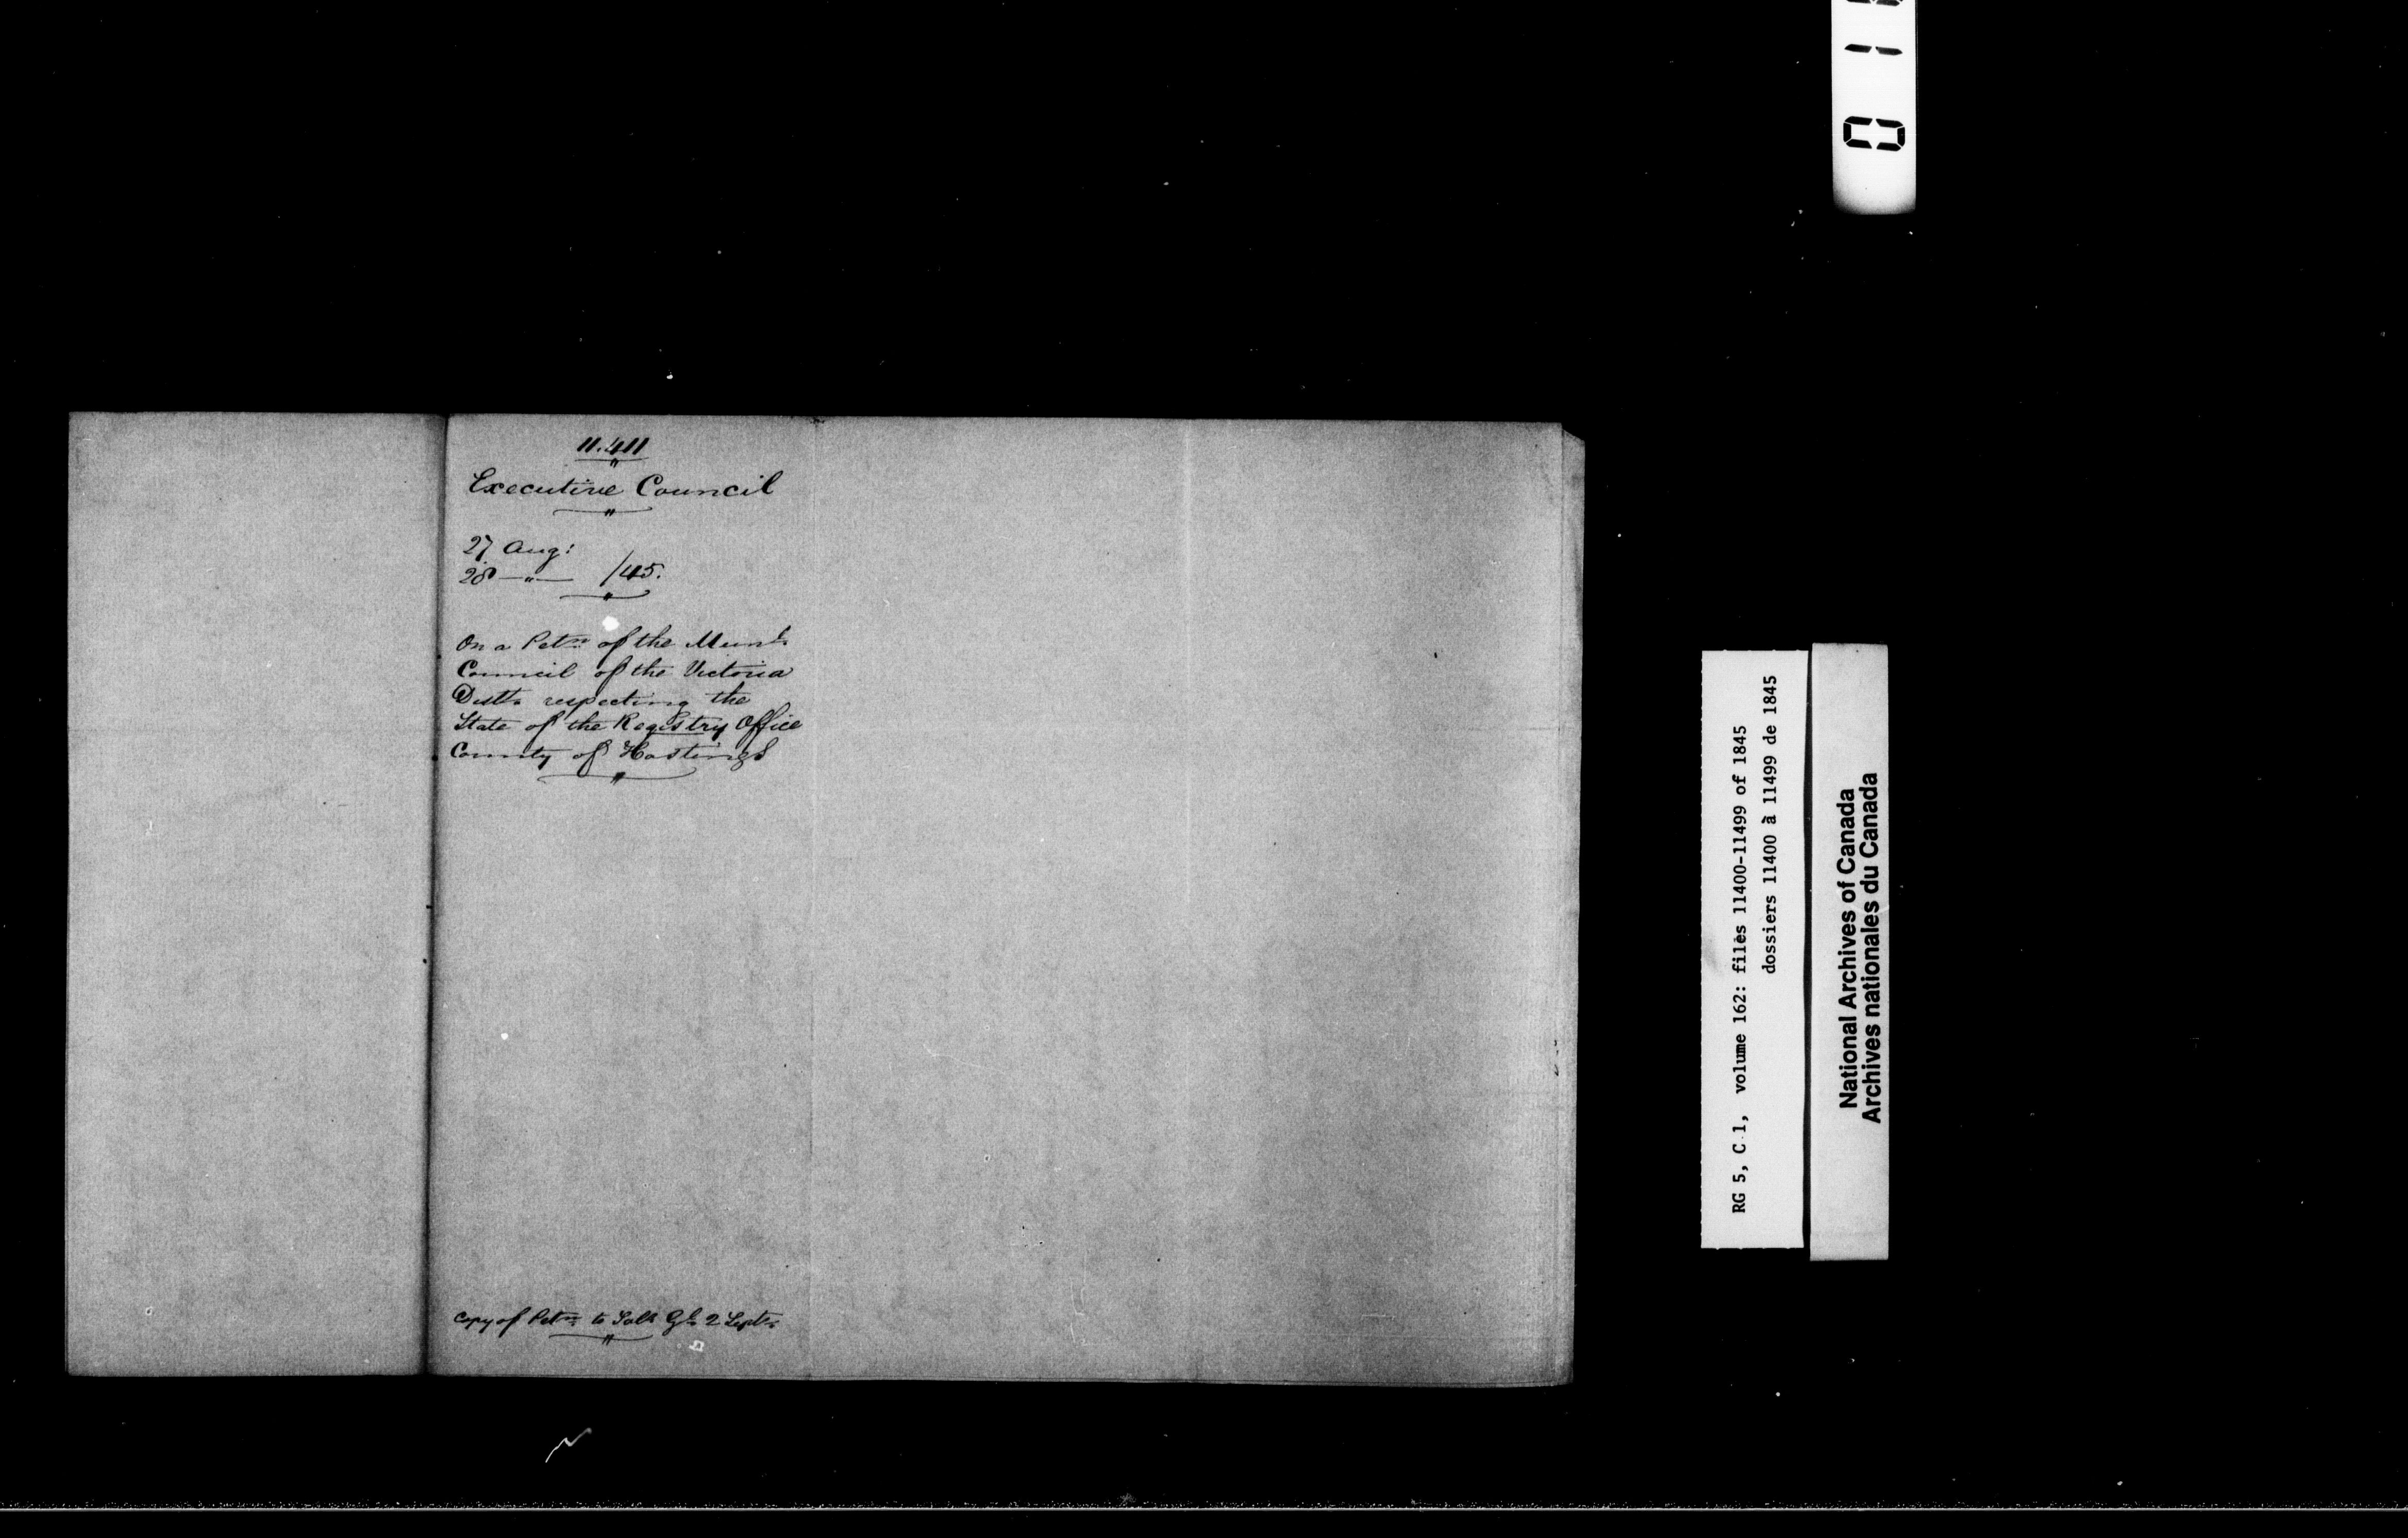 11.411
Executive Council
27 Aug:
28 —"— /45.
On a Petn of the Munl
Council of the Victoria
Distt. respecting the
State of the Registry Office
County of Hastings
Copy of Petn to Solr Gl. 2 Septr
RG 5, C 1, volume 162: files 11400-11499 of 1845
dossiers 11400 à 11499 de 1845
National Archives of Canada
Archives nationales du Canada